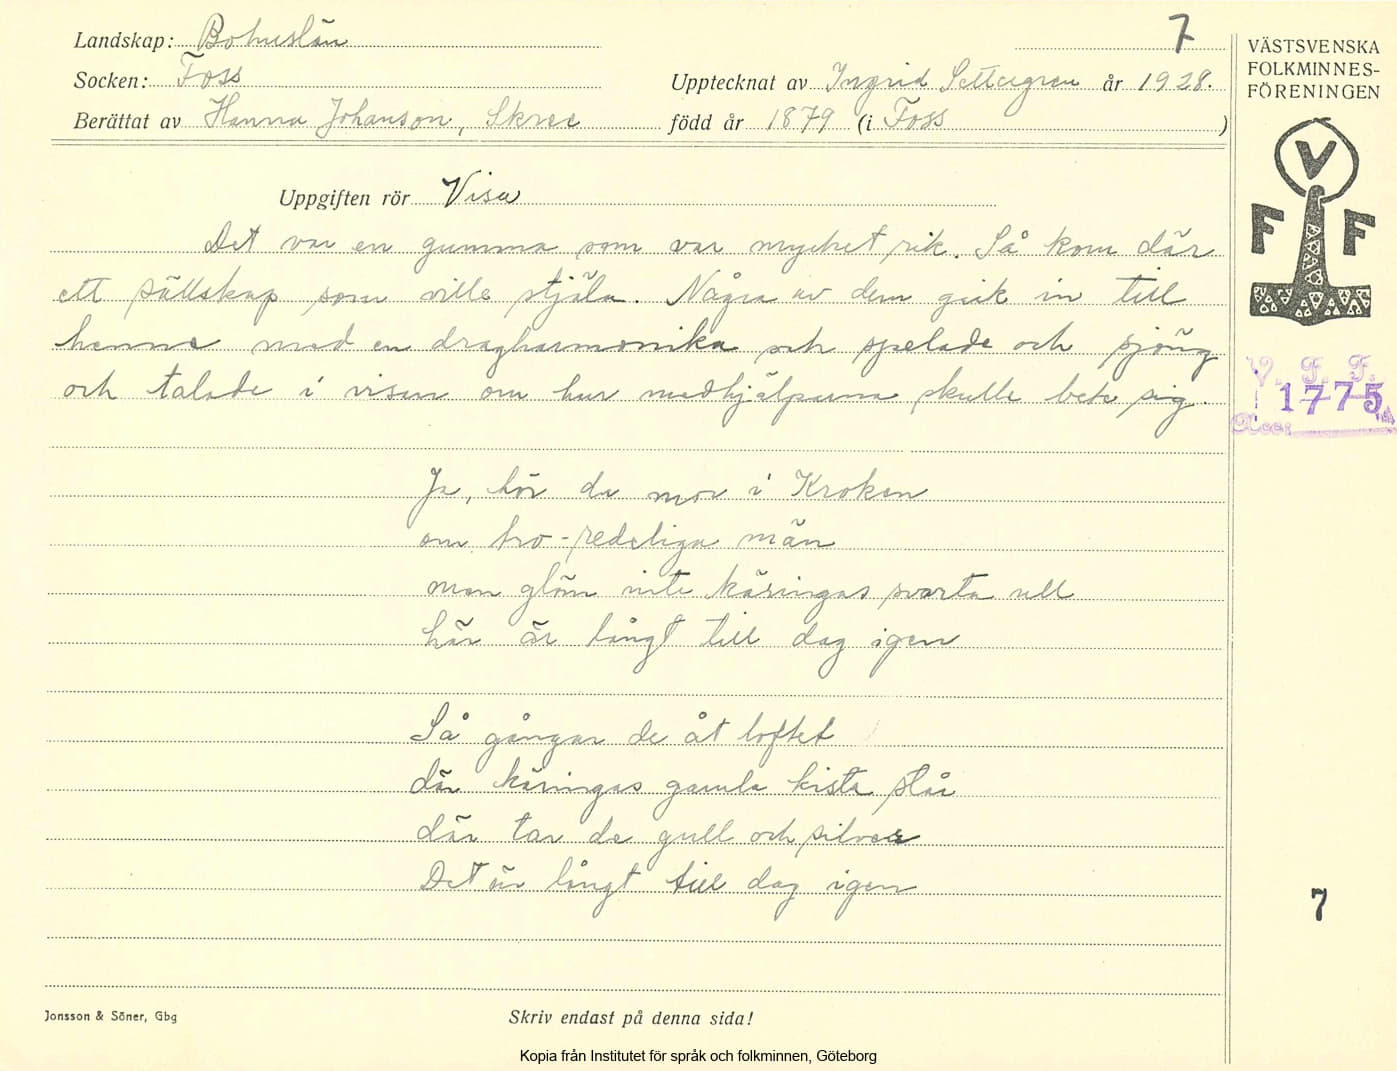 7
Landskap: Bohuslän
Socken: Foss
Upptecknat av Ingrid Settergren år 1928.
Berättat av Hanna Johanson, Skree född år 1879 (i Foss)
VÄSTSVENSKA
FOLKMINNES-
FÖRENINGEN
V
F F
Uppgiften rör Visa
Det var en gumma som var mycket rik. Så kom där
ett sällskap som ville stjäla. Några av dem gick in till
henne med en dragharmonika och spelade och sjöng
och talade i visan om hur medhjälparna skulle bete sig.
V. F. F.
1775
Acc:
Ja, hör du mor i Kroken
om tro-redeliga män
men glöm inte käringas svarta ull
här är långt till dag igen
Så gångar de åt loftet
där käringas gamla kista står
där tar de gull och silver
Det är långt till dag igen
7
Jonsson & Söner, Gbg
Skriv endast på denna sida!
Kopia från Institutet för språk och folkminnen, Göteborg